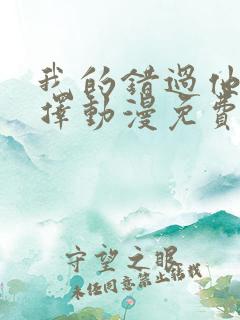 我的錯過他
擇動漫免費
守望之眼
未经同意禁止转载